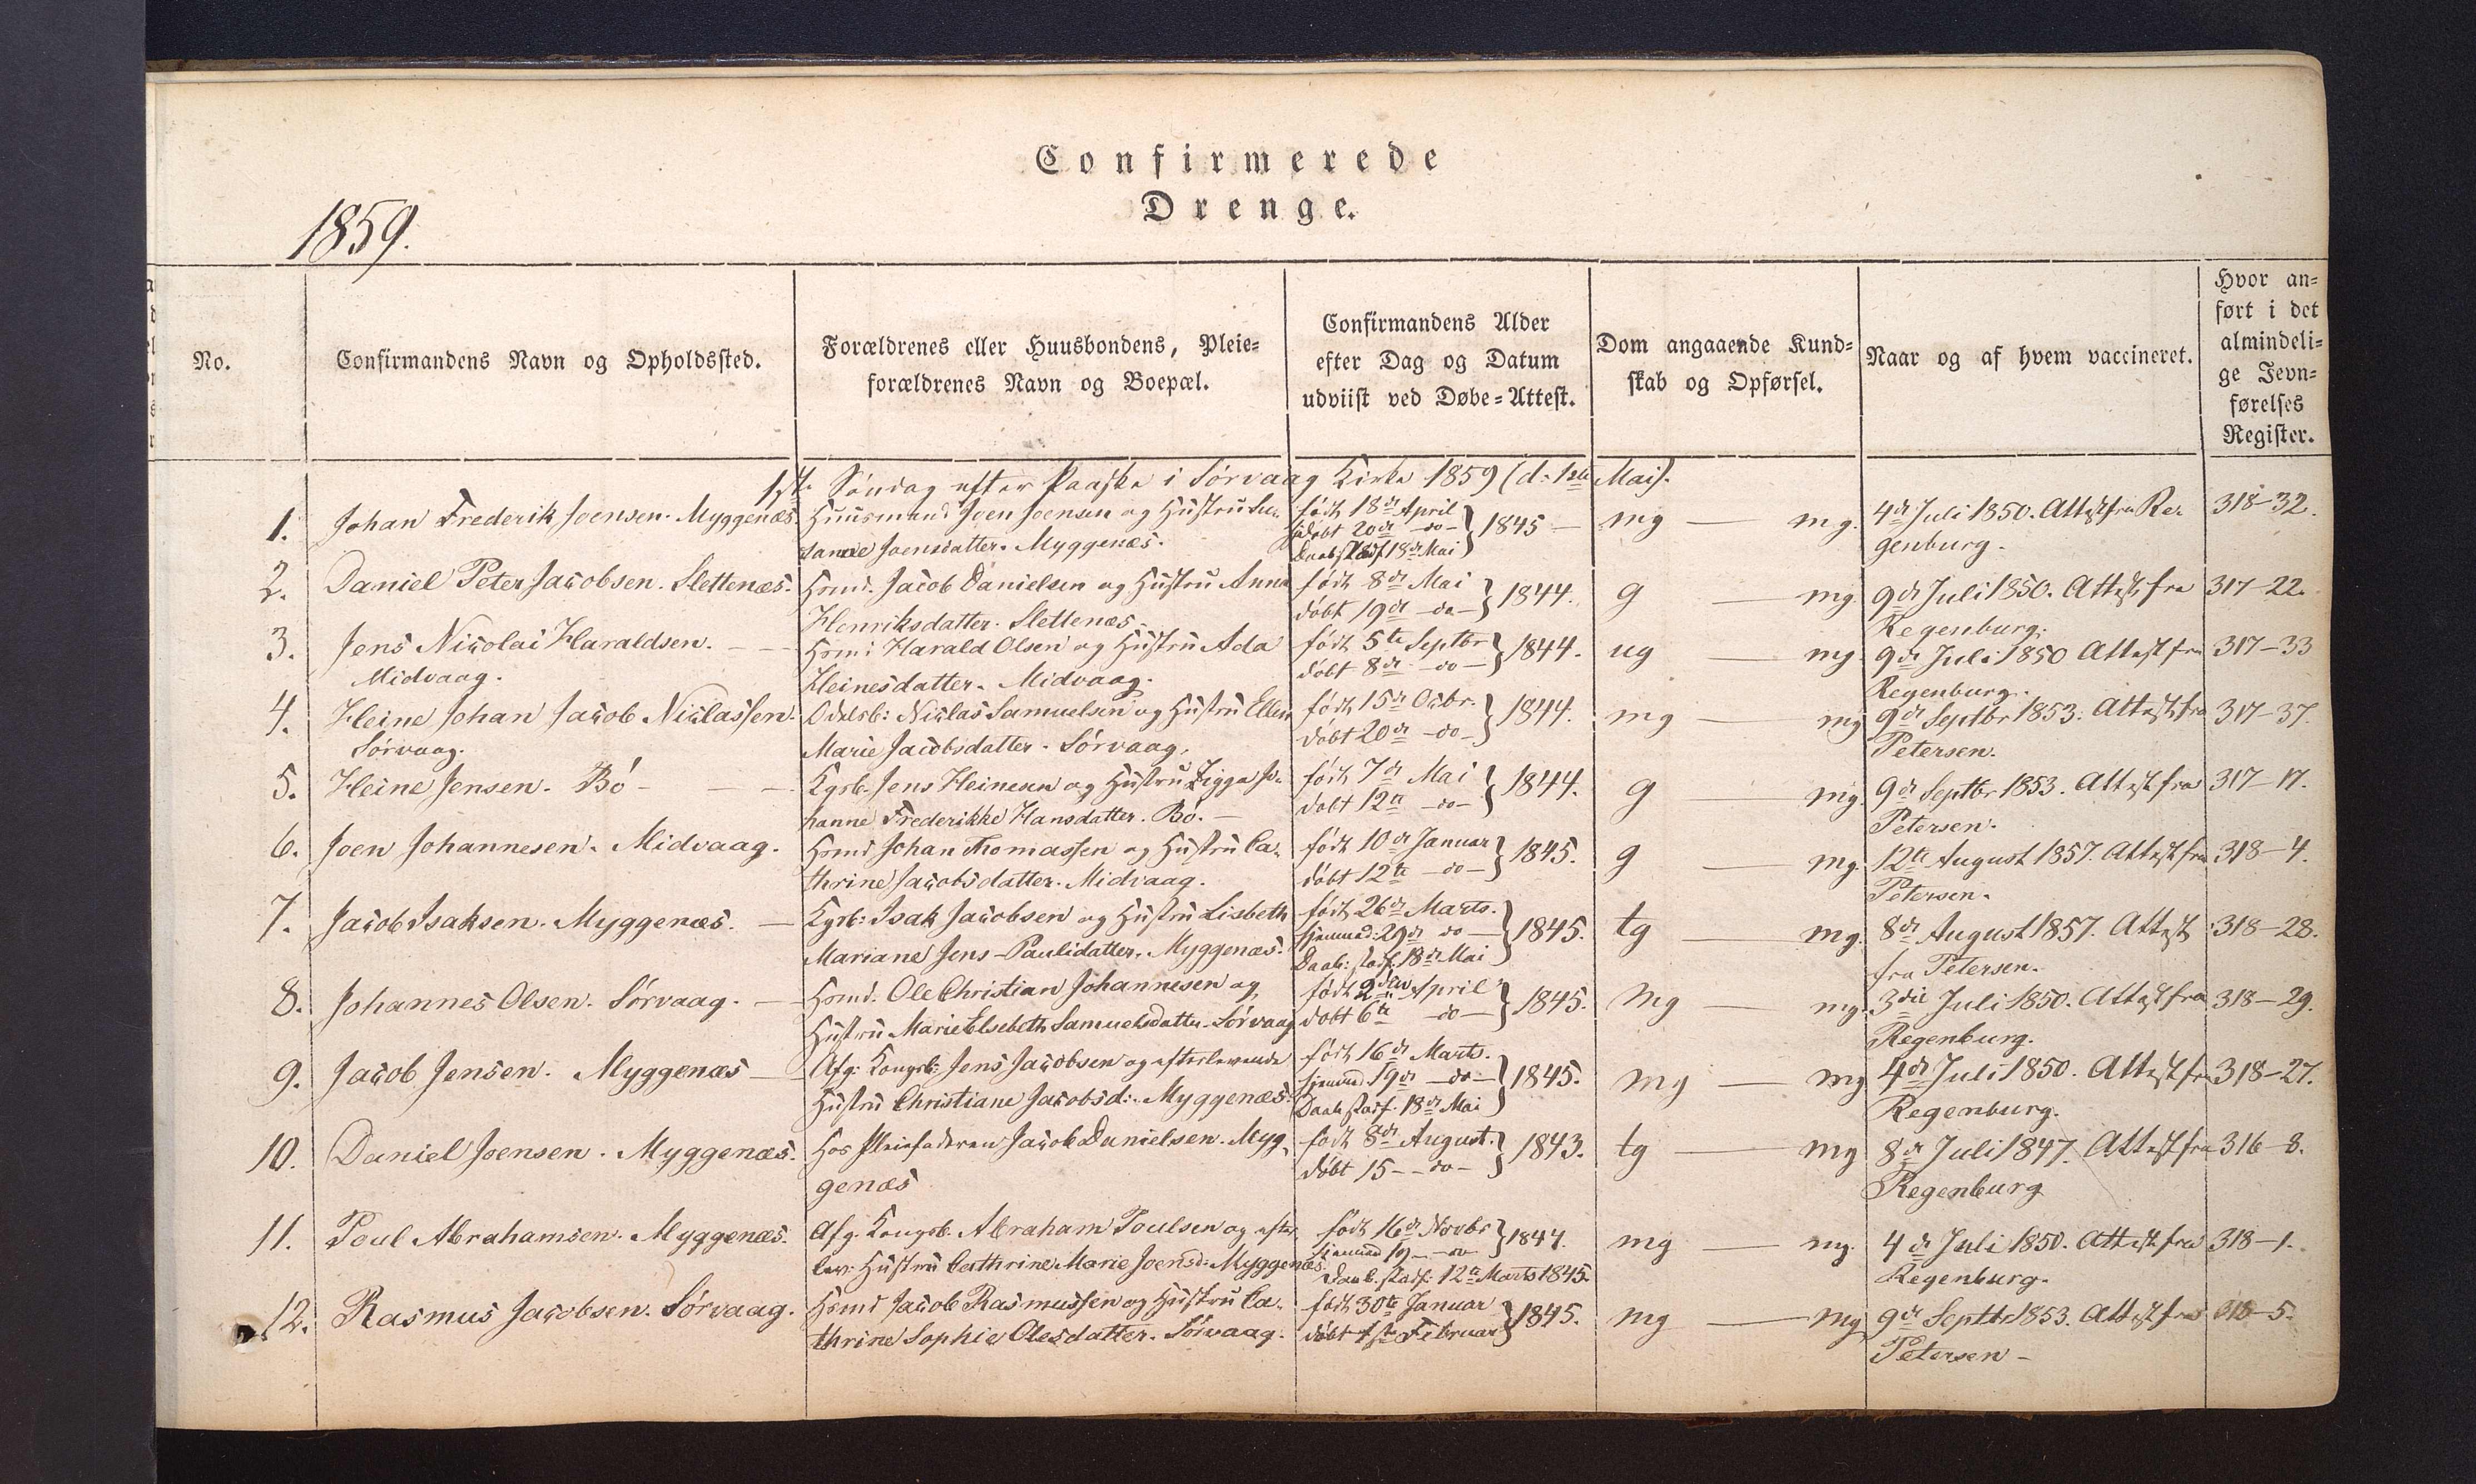 Confirmerede
Drenge.
1859.
No.
Confirmandens Navn og Opholdssted.
Forældrenes eller Huusbondens, Pleie=
forældrenes Navn og Boepæl.
Confirmandens Alder
efter Dag og Datum
udviist ved Døbe=Attest.
Dom angaaende Kund=
skab og Opførsel.
Naar og af hvem vaccineret.
Hvor an=
ført i det
almindeli=
ge Jevn=
førelses
Register.
1ste Søndag efter Paaske i Sørvaag Kirke 1859 (d. 1ste Mai).
1. Johan Frederik Joensen. Myggenæs. Huusmand Joen Joensen og Hustru Su= født 18de April
sanne Joensdatter. Myggenæs. hjdøbt 20de - do - } 1845 - mg — mg. 4de Juli 1850. Attest fra Re= 318-32.
Daab stadf. 18de Mai genburg.
2. Daniel Peter Jacobsen. Slettenæs. Hsmd. Jacob Danielsen og Hustru Anna født 8de Mai } 1844. g — mg. 9de Juli 1850. Attest fra 317-22.
Henriksdatter. Slettenæs. døbt 19de - do - Regenburg.
3. Jens Nicolai Haraldsen. - - Hsmd Harald Olsen og Hustru Ada født 5te Septbr } 1844. ug — mg. 9de Juli 1850 Attest fra 317-33
Midvaag. Heinesdatter. Midvaag. døbt 8de - do - Regenburg.
4. Heine Johan Jacob Niclassen. Odelsb: Niclas Samuelsen og Hustru Ellen født 15de Octbr. } 1844. mg — mg 9de Septbr 1853. Attest fra 317-37.
Sørvaag. Marie Jacobsdatter. Sørvaag. døbt 20de - do - Petersen.
5. Heine Jensen. Bö - - - Kgsb. Jens Heinesen og Hustru Zigga Jo= født 7de Mai } 1844. g — mg. 9de Septbr 1853. Attest fra 317-17.
hanne Frederikke Hansdatter. Bö. - døbt 12te - do - Petersen.
6. Joen Johannesen. Midvaag. Hsmd Johan Thomassen og Hustru Ca= født 10de Januar } 1845. g — mg. 12te August 1857. Attest fra 318-4.
thrine Jacobsdatter. Midvaag. døbt 12te - do - Petersen.
7. Jacob Isaksen. Myggenæs. - Kgsb: Isak Jacobsen og Hustru Lisbeth født 26de Marts.
Mariane Jens-Paulidatter. Myggenæs. hjemmed: 29de do - } 1845. tg — mg. 8de August 1857. Attest 318-28.
Daab: stadf. 18de Mai fra Petersen.
8. Johannes Olsen. Sørvaag. - Hsmd. Ole Christian Johannesen og født 2den April } 1845. mg — mg. 3die Juli 1850. Attest fra 318-29.
Hustru Marie Elsebeth Samuelsdatter. Sørvaag døbt 6te - do - Regenburg.
9. Jacob Jensen. Myggenæs - Afg: Kongsb: Jens Jacobsen og efterlevende født 16de Marts.
Hustru Christiane Jacobsd:. Myggenæs. hjemmed 19de - do - } 1845. mg — mg 4de Juli 1850. Attest fra 318-27.
Daab stadf. 18de Mai Regenburg.
10. Daniel Joensen. Myggenæs. Hos Pleiefaderen Jacob Danielsen. Myg= født 8de August. } 1843. tg — mg 8de Juli 1847. Attest fra 316-8.
genæs døbt 15 - - do - Regenburg
11. Poul Abrahamsen. Myggenæs. Afg. Kongsb. Abraham Poulsen og efter= født 16de Novbr } 1844. mg — mg. 4de Juli 1850. Attest fra 318-1.
lev: Hustru Cathrine Marie Joensd: Myggenæs. hjemmed 19 - - do Regenburg.
Daab. stadf: 12te Marts 1845.
12. Rasmus Jacobsen. Sørvaag. Hsmd Jacob Rasmussen og Hustru Ca= født 30te Januar } 1845. mg — mg 9de Septbr 1853. Attest fra 318-5.
thrine Sophie Olesdatter. Sørvaag. døbt 1ste Februar Petersen -